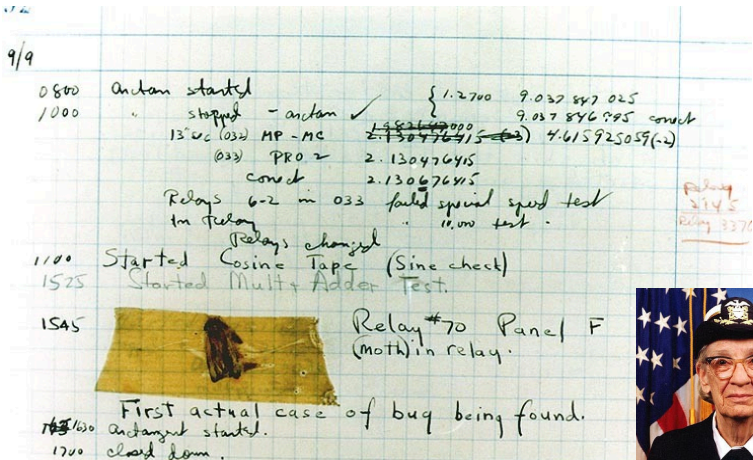 9/9
0800 arctan started { 1.2700 9.037 847 025
1000 " stopped - arctan ✓ 9.037 846 995 correct
13"uc (032) MP - MC 2.130476415 (-3) 4.615925059(-2)
(033) PRO 2 2.130476415
correct 2.130676415
Relays 6-2 in 033 failed special speed test
In Relay " 10,000 test .
Relay
2145
Relay 3370
Relays changed
1100 Started Cosine Tape (Sine check)
1525 Started Mult + Adder Test.
1545 Relay #70 Panel F
(moth) in relay.
First actual case of bug being found.
1630 arctangent started.
1700 closed down.